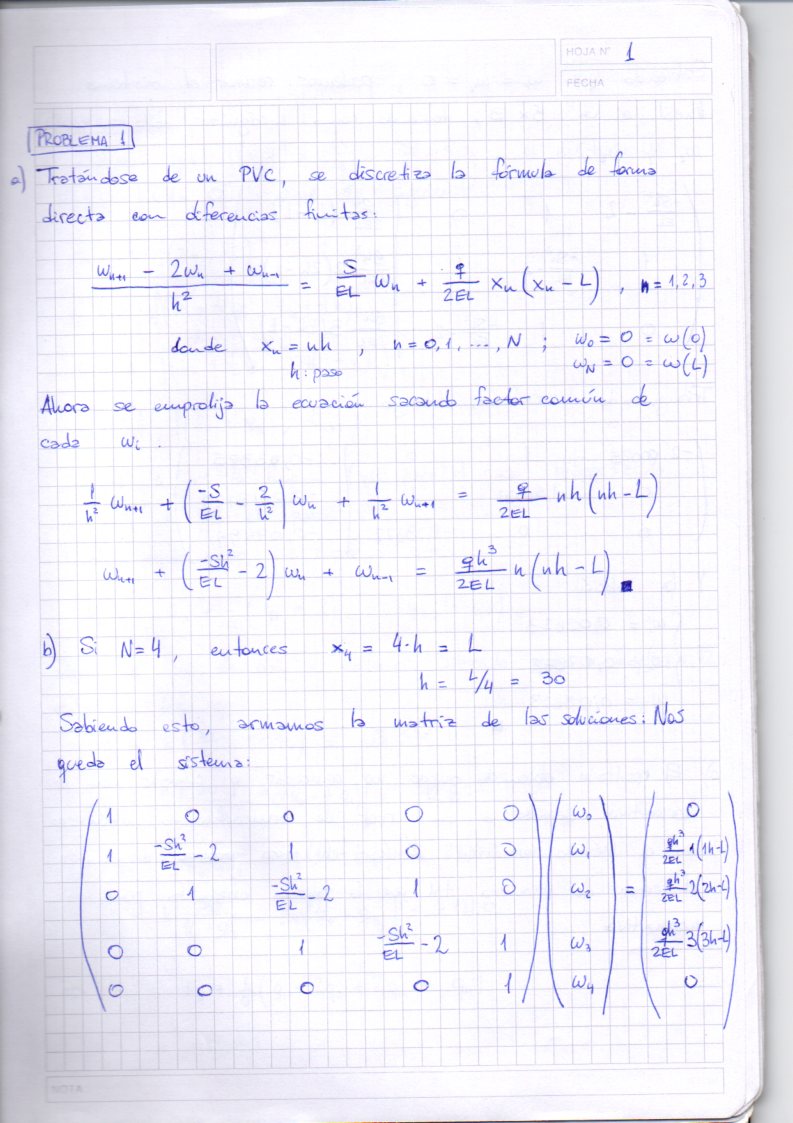 HOJA Nº 1
FECHA
PROBLEMA 1
a) Tratándose de un PVC, se discretiza la fórmula de forma
directa con diferencias finitas:
(w_{n+1} - 2w_n + w_{n-1}) / h² = S/EL w_n + q/2EL x_n (x_n - L) , n = 1,2,3
donde x_n = nh , n = 0,1, ..., N ; w_0 = 0 = w(0)
h: paso w_N = 0 = w(L)
Ahora se emprolija la ecuación sacando factor común de
cada w_i.
1/h² w_{n+1} + (-S/EL - 2/h²) w_n + 1/h² w_{n+1} = q/2EL nh (nh - L)
w_{n+1} + (-Sh²/EL - 2) w_n + w_{n-1} = qh³/2EL n (nh - L)
b) Si N=4, entonces x_4 = 4·h = L
h = L/4 = 30
Sabiendo esto, armamos la matriz de las soluciones: Nos
queda el sistema:
1 0 0 0 0 w_0 0
1 -Sh²/EL - 2 1 0 0 w_1 qh³/2EL 1(1h-L)
0 1 -Sh²/EL - 2 1 0 w_2 = qh³/2EL 2(2h-L)
0 0 1 -Sh²/EL - 2 1 w_3 qh³/2EL 3(3h-L)
0 0 0 0 1 w_4 0
NOTA